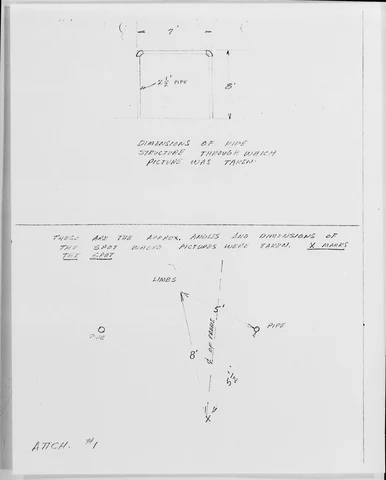 7'
2½" PIPE
8'
DIMENSIONS OF PIPE
STRUCTURE THROUGH WHICH
PICTURE WAS TAKEN.
THESE ARE THE APPROX. ANGLES AND DIMENSIONS OF
THE SPOT WHERE PICTURES WERE TAKEN. X MARKS
THE SPOT
LIMBS
PIPE
PIPE
8'
5½'
X
ATTCH. #1